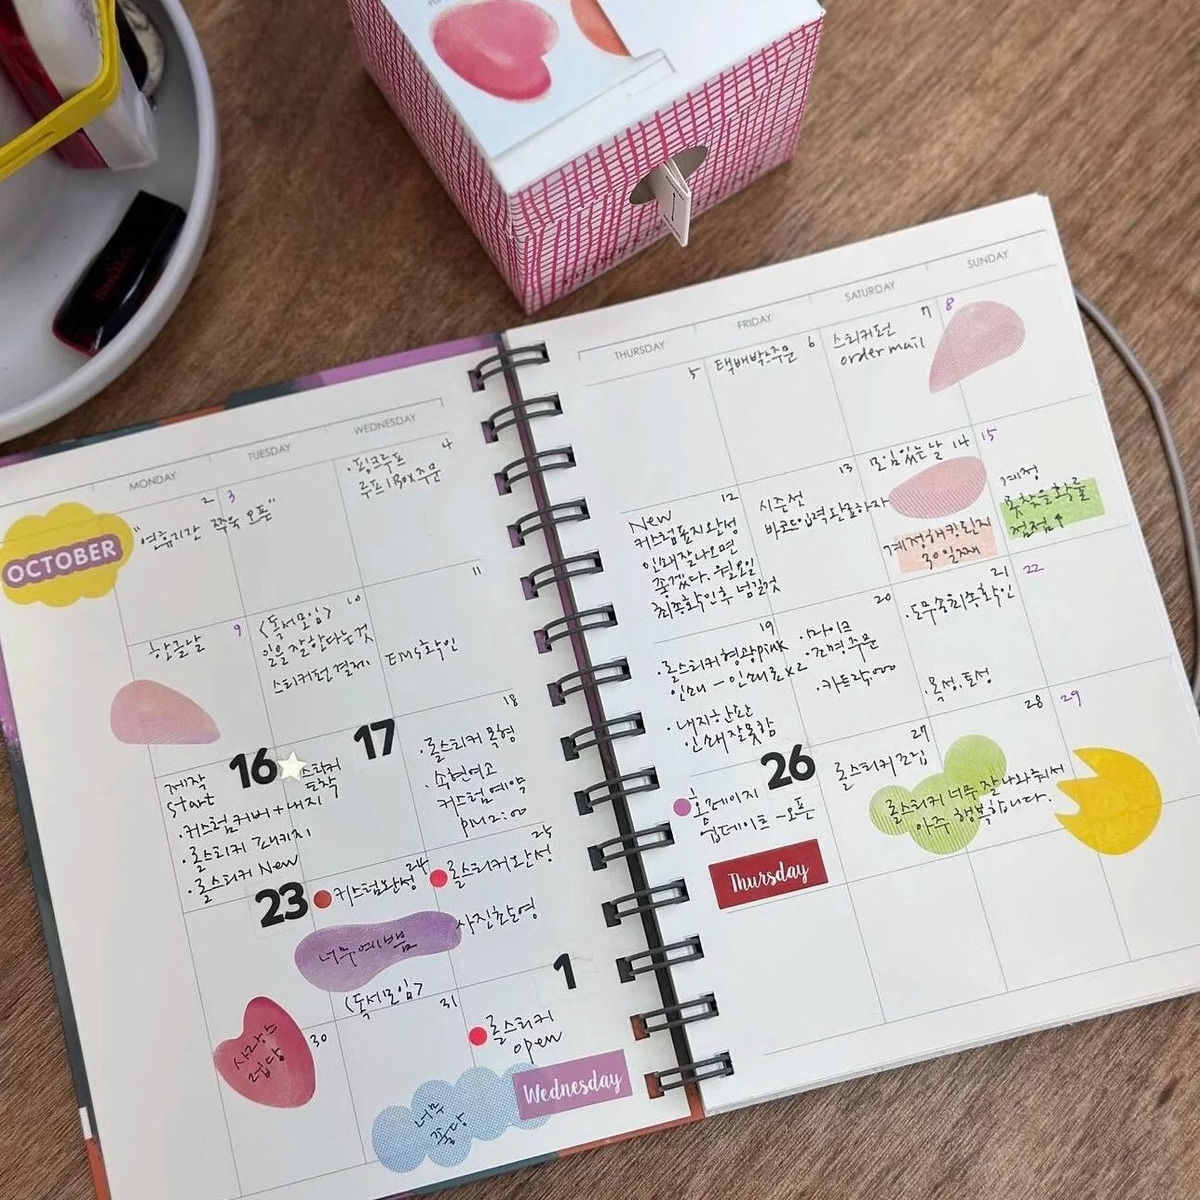 MONDAY
TUESDAY
WEDNESDAY
THURSDAY
FRIDAY
SATURDAY
SUNDAY
OCTOBER
2
"연휴기간 쭈욱 오픈"
3
4
·핑크루프
루프 1 Box 주문
5
6
택배박스주문
7
스티커펀
order mail
8
9
한글날
10
<독서모임>
일을 잘한다는 것
스티커펀 결제
11
EMS 확인
12
New
커스텀 품지완성
인쇄 잘 나오면
좋겠다. 월요일
최종확인후 넘길것
13
시준선
바코드입력 완료하자
14
모임있는날
계정해킹된지
30일째
15
계정
못찾을확률
점점↑
16
제작
start
·커스텀커버+내지
·롤스티커 패키지
·롤스티커 New
17
스티커
도착
18
·롤스티커 목형
·소현언고
커스텀예약
pm 2:00
19
·롤스티커 형광pink
인쇄 - 인쇄료x2
·내지
인쇄 잘못함
20
·마이크
·주문
·카트
21
·도무송 최종확인
·목성, 토성
22
23
24
커스텀완성
너무예쁨
25
롤스티커완성
사진촬영
26
홈페이지
업데이트 - 오픈
Thursday
27
롤스티커조립
28
롤스티커 너무 잘 나와줘서
아주 행복합니다.
29
30
사랑스
럽당
31
<독서모임>
너무
좋당
1
롤스티커
open
Wednesday